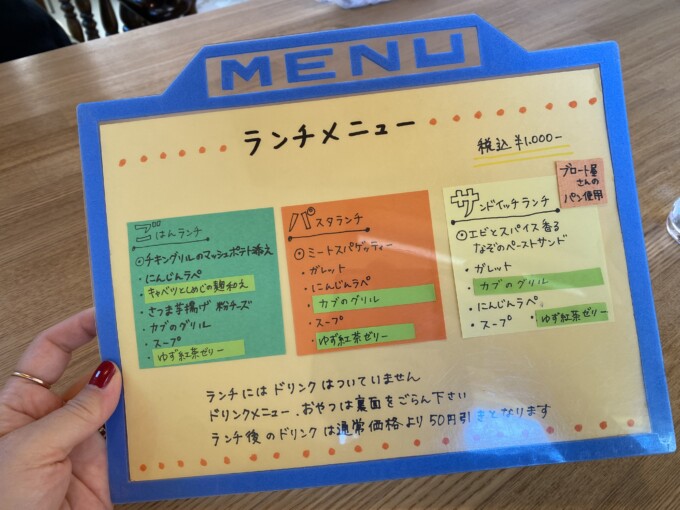 MENU
ランチメニュー
税込 ¥1.000-
ごはんランチ
⊙チキングリルのマッシュポテト添え
・にんじんラペ
・キャベツとしめじの麹和え
・さつま芋揚げ 粉チーズ
・カブのグリル
・スープ
・ゆず紅茶ゼリー
パスタランチ
⊙ミートスパゲッティー
・ガレット
・にんじんラペ
・カブのグリル
・スープ
・ゆず紅茶ゼリー
サンドイッチランチ
ブロート屋
さんの
パン使用
⊙エビとスパイス香る
なぞのペーストサンド
・ガレット
・カブのグリル
・にんじんラペ
・スープ ・ゆず紅茶ゼリー
ランチにはドリンクはついていません
ドリンクメニュー、おやつは裏面をごらん下さい
ランチ後のドリンクは通常価格より50円引きとなります